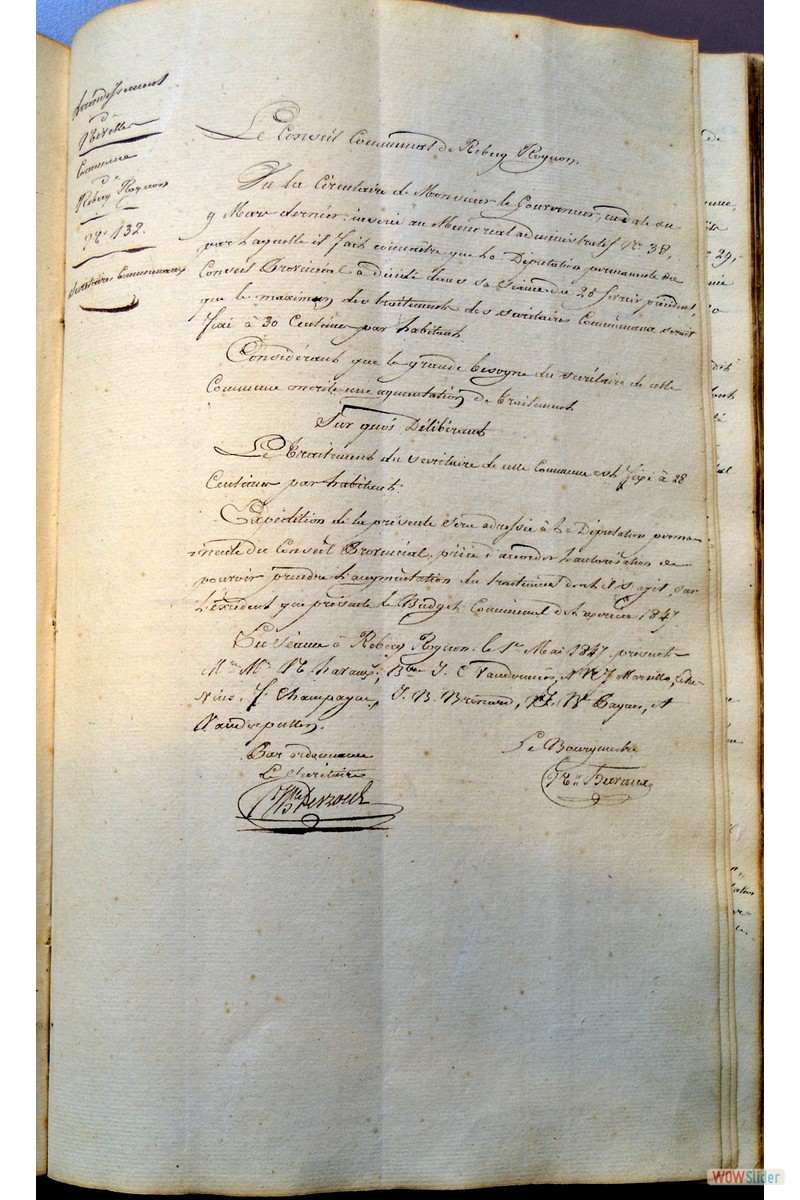 Arrondissement
de
Nivelles
Commune
de
Rebecq Rognon
N° 132.
Secretaires Communaux
Le Conseil Communal de Rebecq Rognon.
Vu la Circulaire de Monsieur le Gouverneur, en date du
9 Mars dernier, inserée au Mémorial administratif N° 38,
par laquelle il fait connaître que la Députation permanente du
Conseil Provincial a décidé dans sa séance du 25 fevrier précédent,
que le maximum des traitements des secrétaires Communaux serait
fixé à 30 Centimes par habitant.
Considérant que la grande besogne du secrétaire de cette
Commune mérite une augmentation de traitement
Sur quoi Délibérant
Le Traitement du secrétaire de cette Commune est fixé à 28
Centimes par habitant.
Expédition de la présente sera adressée à la Députation perma-
nente du Conseil Provincial, priée d'accorder l'autorisation de
pouvoir prendre l'augmentation du traitement dont il s'agit, sur
l'excédent que présente le Budget Communal de l'exercice 1847.
En séance à Rebecq Rognon le 1er Mai 1847 présents
M.rs M.rs J. C. Vandormies,
J. Champagne, J. B. Brenard,
Vandeputten.
Par ordonnance
Le Secrétaire
Le Bourgmestre